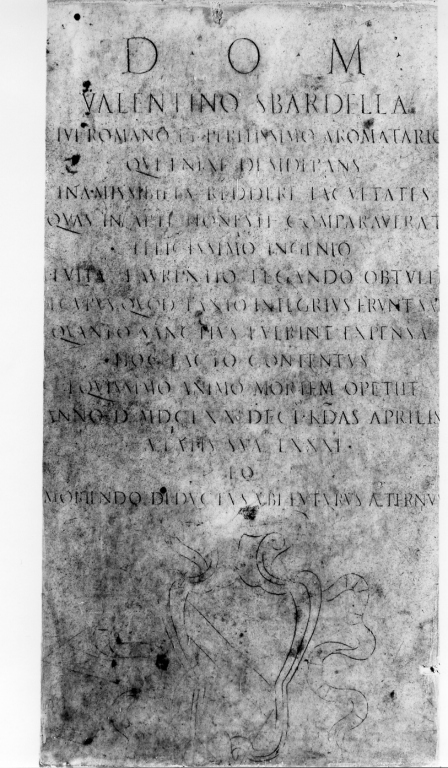 D O M
VALENTINO SBARDELLA
IVI ROMANO ET PERITISSIMO AROMATARIO
QVI ENIXE DESIDERANS
INAMISSIBILES REDDERE FACVLTATES
QVAS IN ARTE HONESTE COMPARAVERAT
FELICISSIMO INGENIO
LAVRENTIO LEGANDO OBTVLIT
QVOD TANTO INTEGRIVS
QVANTO SANCTIVS FVERINT EXPENSA
HOC FACTO CONTENTVS
EQVISSIMO ANIMO MORTEM OPETIIT
ANNO D MDCLXX APRILIS
SVÆ LXXXI
EO
MORIENDO DEDVCTVS VBI FVTVRVS ÆTERNV